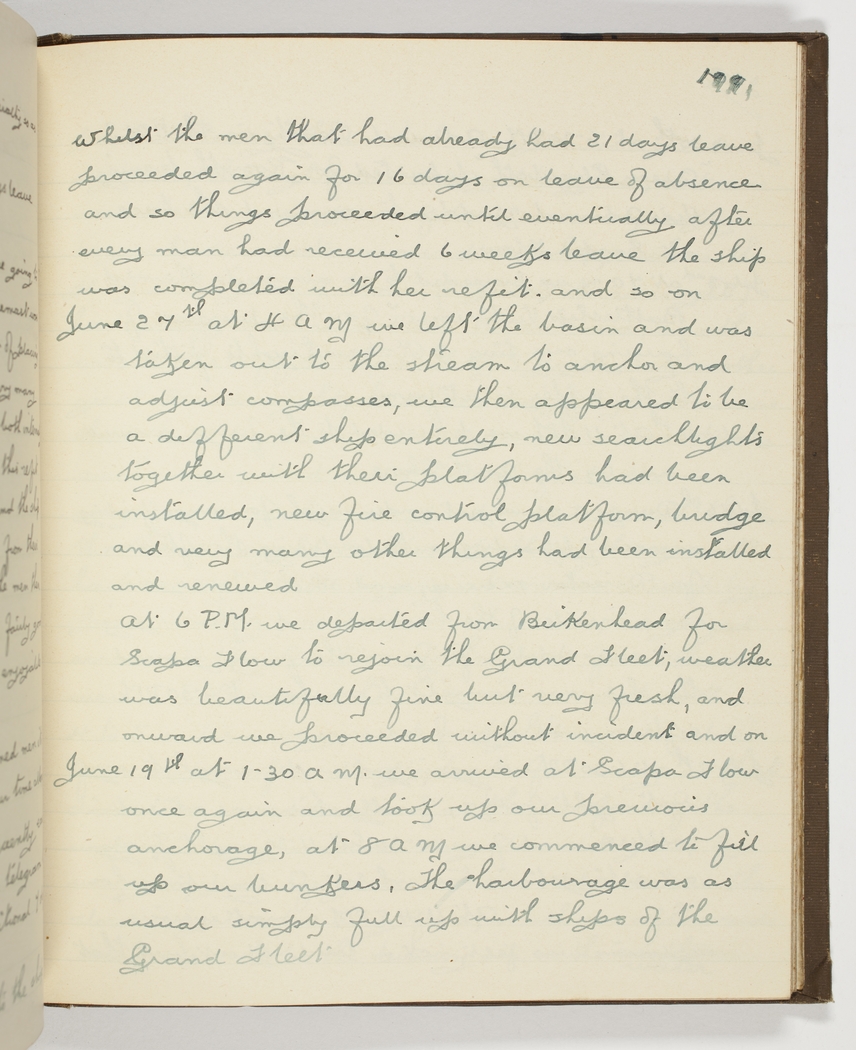 Whilst the men that had already had 21 days leave
proceeded again for 16 days on leave of absence
and so things proceeded until eventually after
every man had received 6 weeks leave the ship
was completed with her refit. and so on
June 27th at 4 A M we left the basin and was
taken out to the stream to anchor and
adjust compasses, we then appeared to be
a different ship entirely, new searchlights
together with their platforms had been
installed, new fire control platform, bridge
and very many other things had been installed
and renewed
At 6 P.M. we departed from Beikenhead for
Scapa Flow to rejoin the Grand Fleet, weather
was beautifully fine but very fresh, and
onward we proceeded without incident and on
June 19th at 1-30 A M. we arrived at Scapa Flow
once again and took up our previous
anchorage, at 8 A M we commenced to fill
up our bunkers. The harbourage was as
usual simply full up with ships of the
Grand Fleet